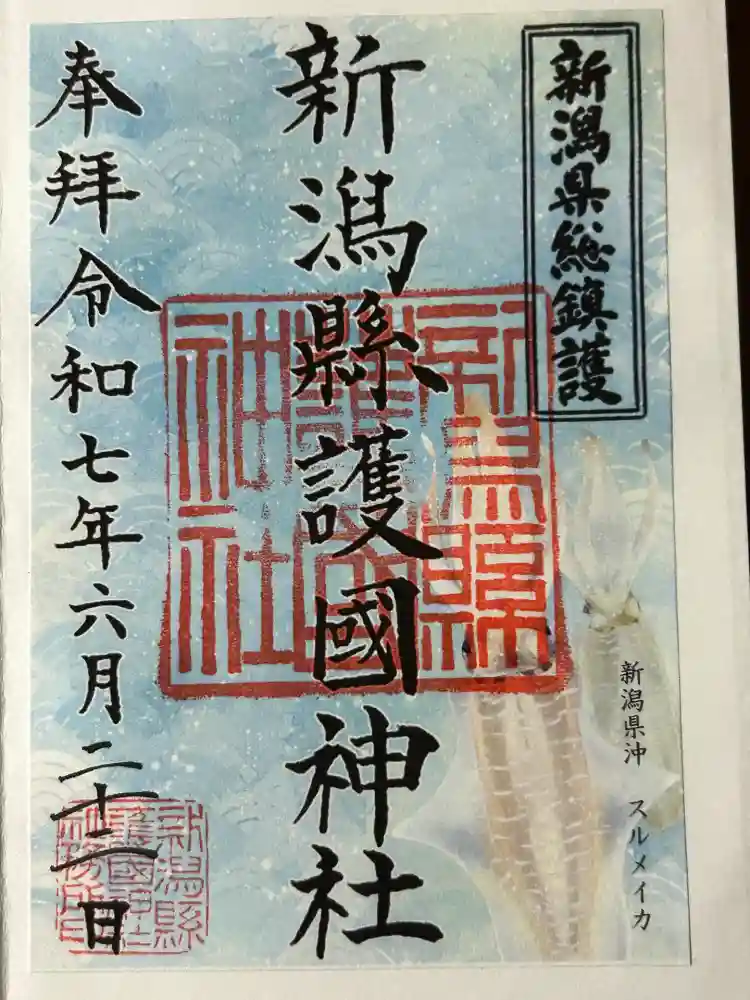 新潟県総鎮護
新潟縣護國神社
奉拝令和七年六月二十二日
新潟県沖 スルメイカ
新潟縣
護國
神社
新潟縣
護國神社
社務所印